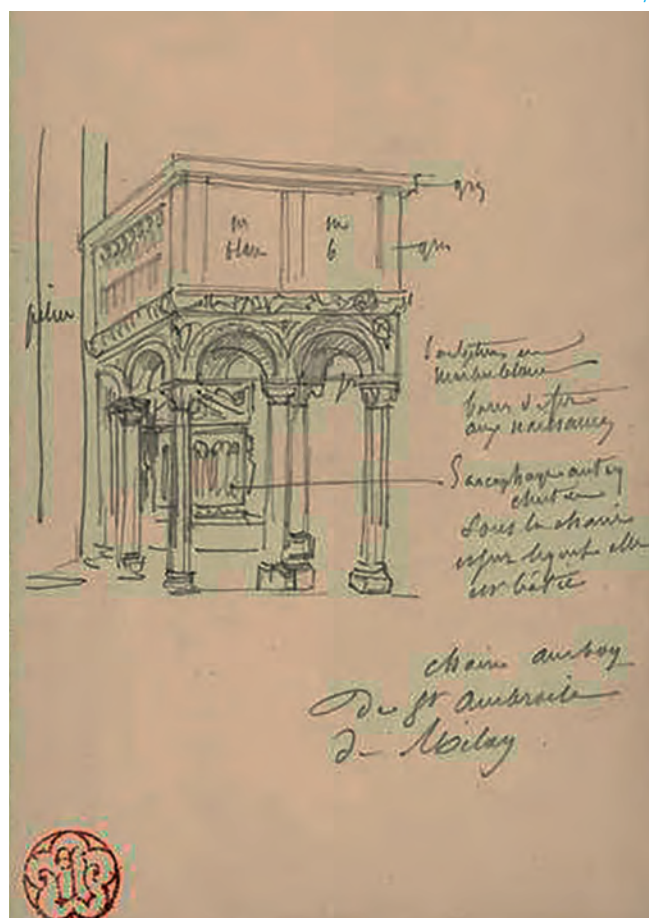 gris
m
blanc
m
b
gris
pilier
Sculptures en
marbre blanc
barres de fer
aux naissances
Sarcophage antiq
chrétien
sous la chaire
et sur lequel elle
est bâtie
chaire ambon
de St Ambroise
de Milan